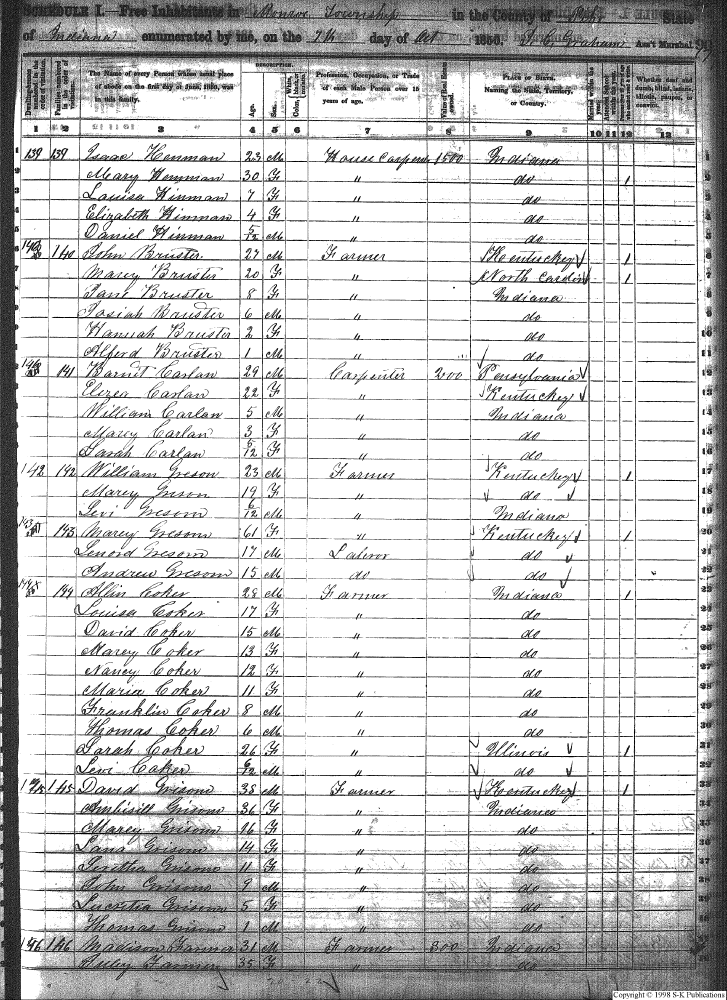 SCHEDULE I.—Free Inhabitants in Monroe Township in the County of Pike State
of Indiana enumerated by me, on the 7th day of Oct 1850. Graham Ass't Marshal
DESCRIPTION.
The Name of every Person whose usual place of abode on the first day of June, 1850, was in this family.
Age.
Sex.
Profession, Occupation, or Trade of each Male Person over 15 years of age.
Value of Real Estate owned.
PLACE OF BIRTH. Naming the State, Territory, or Country.
Whether deaf and dumb, blind, insane, idiotic, pauper, or convict.
1 2 3 4 5 6 7 8 9 10 11 12 13
139 139 Isaac Henman 23 M House Carpenter 1500 Indiana
Mary Henman 30 F " do 1
Louisa Hinman 7 F " do
Elizabeth Hinman 4 F " do
Daniel Hinman 5/12 M " do
140 John Bruster 27 M Farmer Kentucky 1
Marey Bruster 20 F " North Carolin 1
Jane Bruster 8 F " Indiana
Josiah Bruster 6 M " do
Hannah Bruster 2 F " do
Alferd Bruster 1 M " do
141 Carlan 29 M Carpenter 200 Pensylvania
Elezea Carlan 22 F " Kentuckey
William Carlan 5 M " Indiana
Marey Carlan 3 F " do
Sarah Carlan 5/12 F " do
142 142 William Greson 23 M Farmer Kentuckey 1
Marey 19 F " do
Levi Gresom 6/12 M " Indiana
143 Marey Gresom 61 F " Kentuckey 1
Lenord Gresom 17 M Laberor do
Andrew Gresom 15 M do do
144 Allin Coker 28 M Farmer Indiana 1
Louisa Coker 17 F " do
David Coker 15 M " do
Marey Coker 13 F " do
Nancy Coker 12 F " do
Maria Coker 11 F " do
Franklin Coker 8 M " do
Thomas Coker 6 M " do
Sarah Coker 26 F " Illinois 1
Levi Coker 6/12 M " do
145 David Grisom 38 M Farmer Kentuckey 1
Grisom 36 F " Indiana
Marey Grisom 16 F " do
Lana Grisom 14 F " do
Grisom 11 F " do
John Grisom 9 M " do
Lucretia Grisom 5 F " do
Thomas Grisom 1 M " do
146 146 Madison Farmer 31 M Farmer 800 Indiana
Farmer 35 F " do
Copyright © 1998 S-K Publications